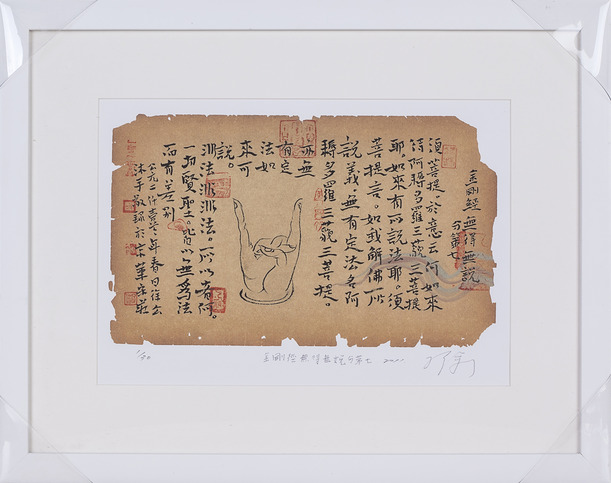 金剛經無得無說
分第七
須菩提。於意云何如來
得阿耨多羅三藐三菩提
耶。如來有所說法耶。須
菩提言。如我解佛所
說義。無有定法名阿
耨多羅三藐三菩提。
亦無
有定
法如
來可
說。
非法非非法。所以者何。
一切賢聖。皆以無為法
而有差別
年春日
沐手敬錄於京華
金剛經無得無說分第七